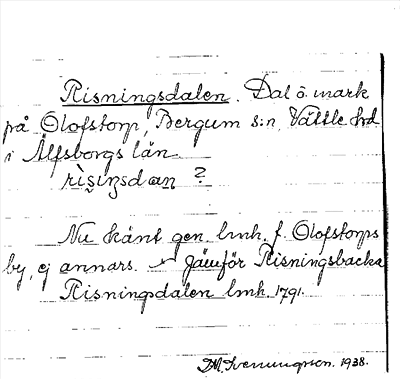 Risningsdalen. Dal å mark
på Olofstorp, Bergum s:n, Vättle hd
i Älfsborgs län.
rìs̬iŋsdαn ?
Nu känt gen. lmh. f. Olofstorps
by, ej annars. Jämför Risningsbacka
Risningsdalen lmh. 1791.
1938.